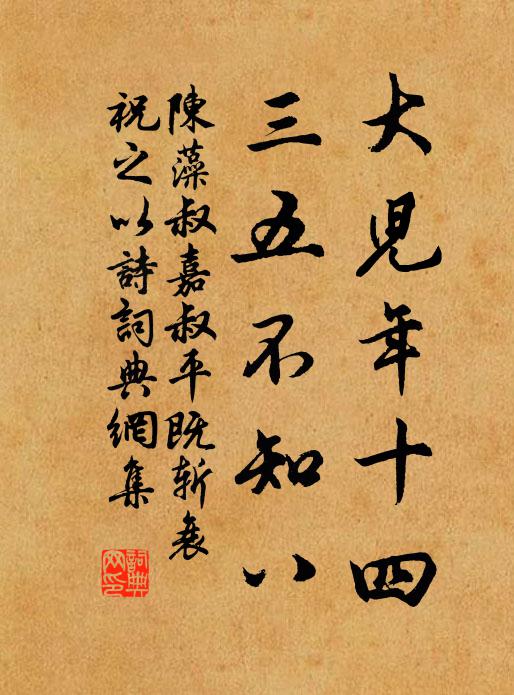 大児年十四
三五不知八
陳藻叔嘉叔平既斬衰
祝之以詩詞典網集
詞典网印